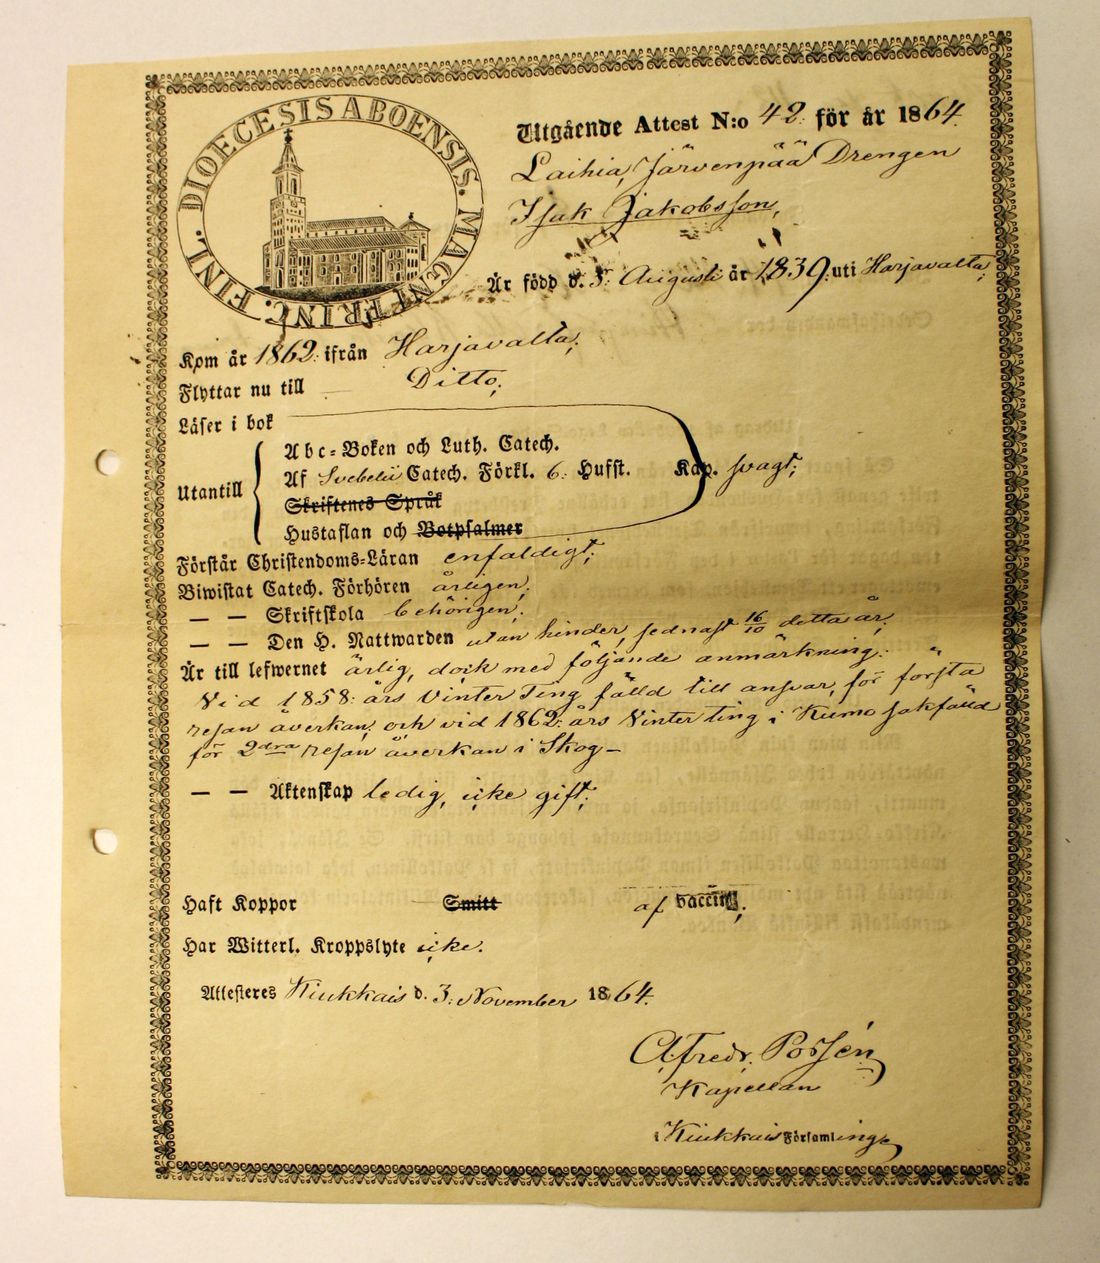 DIOECESIS ABOENSIS. MAGNI PRINC. FINL.
Utgående Attest N:o 42. för år 1864.
Laihia, Järvenpää Drengen
Isak Jakobsson,
Är född d. 5. Augusti år 1839. uti Harjavalta,
Kom år 1862. ifrån Harjavalta,
Flyttar nu till Ditto;
Läser i bok
Utantill
Abc-Boken och Luth. Catech.
Af Svebelii Catech. Förkl. 6. Hufst. Kap. svagt;
Skriftenes Språk
Hustaflan och Botpsalmer
Förstår Christendoms-Läran enfaldigt;
Biwistat Catech. Förhören årligen;
— — Skriftskola behörigen;
— — Den H. Nattwarden utan hinder, sednast 16/10 detta år,
Är till lefwernet ärlig, dock med följande anmärkning:
Vid 1858: års Vinter Ting fälld till ansvar, för första
resan åverkan, och vid 1862: års Vinter ting i Kumo sakfälld
för 2dra resan åverkan i Skog—
— — Äktenskap ledig, icke gift;
Haft Koppor Smitt af vaccin;
Har Witterl. Kroppslyte icke.
Attesteres Kiukkais d. 3. November 1864.
Alfredr. Possén
Kapellan
i Kiukkais Församling